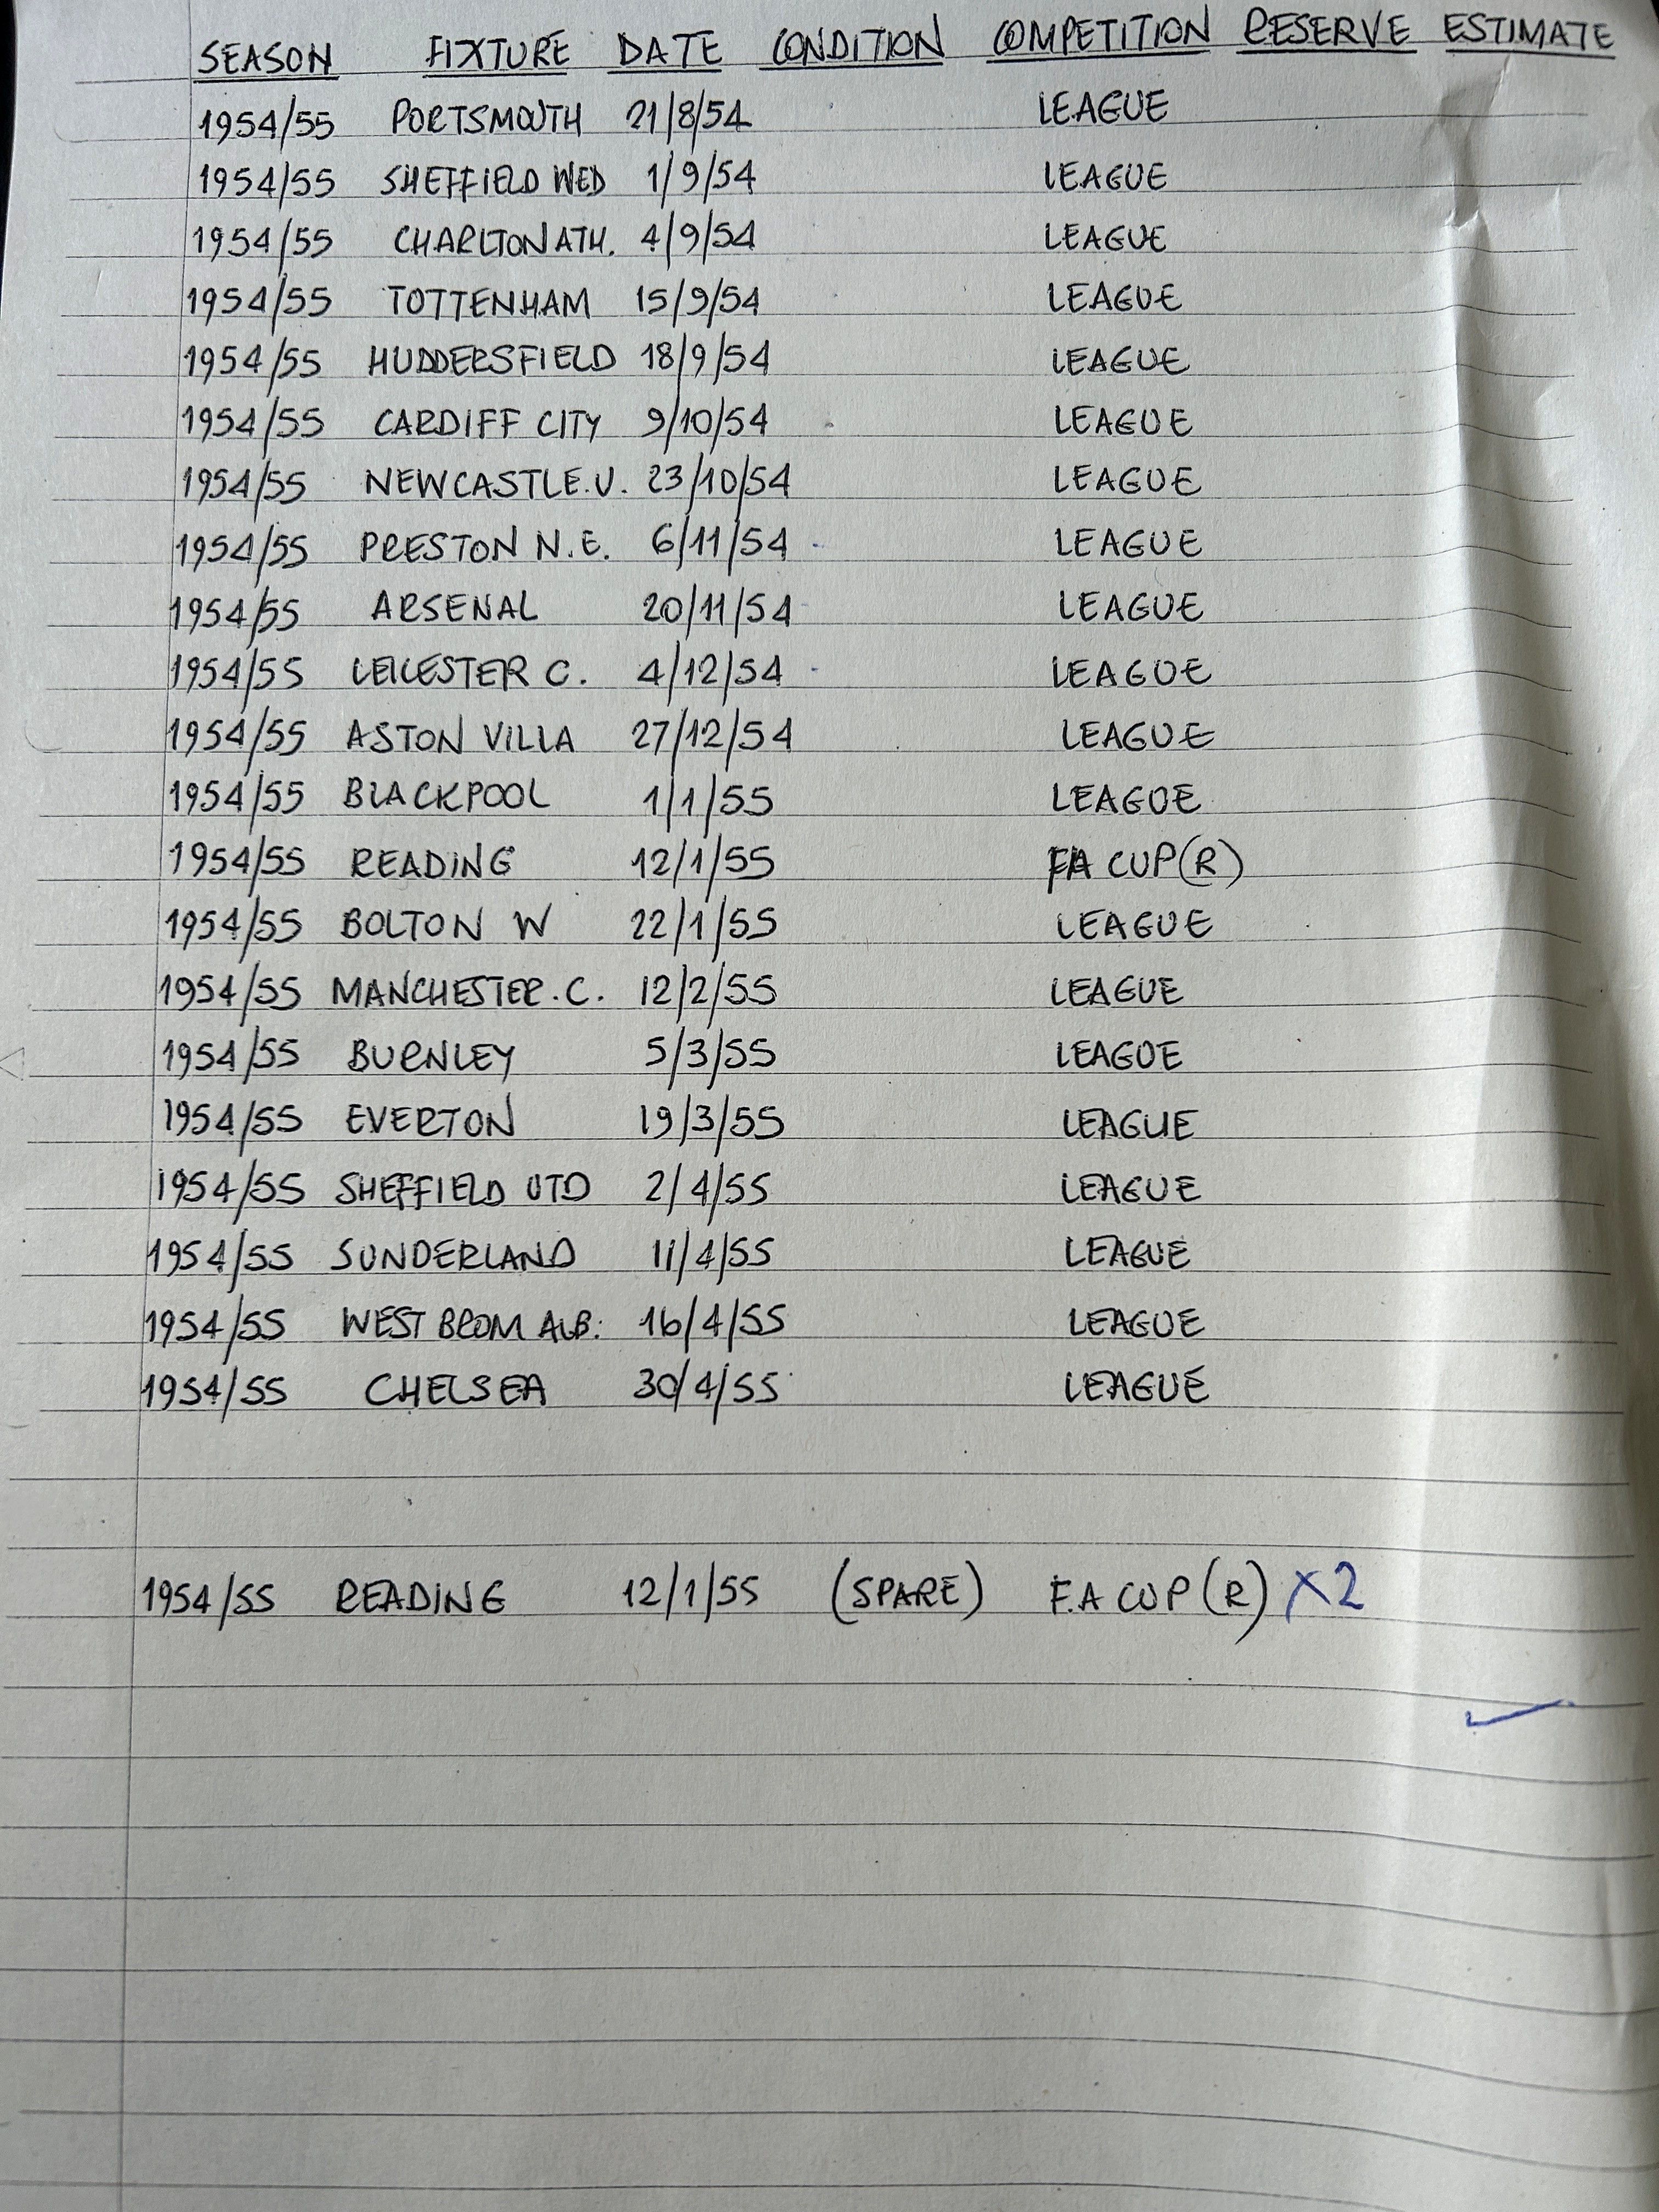 SEASON FIXTURE DATE CONDITION COMPETITION RESERVE ESTIMATE
1954/55 PORTSMOUTH 21/8/54 LEAGUE
1954/55 SHEFFIELD WED 1/9/54 LEAGUE
1954/55 CHARLTON ATH. 4/9/54 LEAGUE
1954/55 TOTTENHAM 15/9/54 LEAGUE
1954/55 HUDDERSFIELD 18/9/54 LEAGUE
1954/55 CARDIFF CITY 9/10/54 LEAGUE
1954/55 NEWCASTLE.U. 23/10/54 LEAGUE
1954/55 PRESTON N.E. 6/11/54 LEAGUE
1954/55 ARSENAL 20/11/54 LEAGUE
1954/55 LEICESTER C. 4/12/54 LEAGUE
1954/55 ASTON VILLA 27/12/54 LEAGUE
1954/55 BLACKPOOL 1/1/55 LEAGUE
1954/55 READING 12/1/55 FA CUP (R)
1954/55 BOLTON W 22/1/55 LEAGUE
1954/55 MANCHESTER.C. 12/2/55 LEAGUE
1954/55 BURNLEY 5/3/55 LEAGUE
1954/55 EVERTON 19/3/55 LEAGUE
1954/55 SHEFFIELD UTD 2/4/55 LEAGUE
1954/55 SUNDERLAND 11/4/55 LEAGUE
1954/55 WEST BROM ALB. 16/4/55 LEAGUE
1954/55 CHELSEA 30/4/55 LEAGUE
1954/55 READING 12/1/55 (SPARE) F.A CUP (R) X2